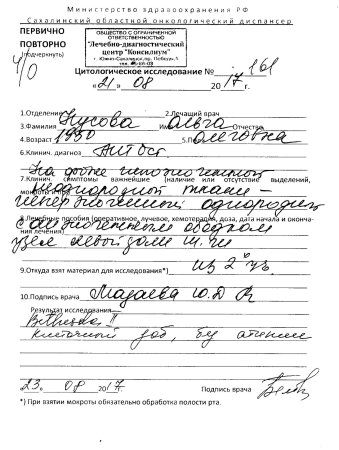 Министерство здравоохранения РФ
Сахалинский областной онкологический диспансер
ПЕРВИЧНО
ПОВТОРНО
(подчеркнуть)
ОБЩЕСТВО С ОГРАНИЧЕННОЙ
ОТВЕТСТВЕННОСТЬЮ
"Лечебно-диагностический
центр "Консилиум"
Цитологическое исследование № 161
« 21 » 08 2017 г.
1.Отделение 2.Лечащий врач
3.Фамилия Кусова Имя Ольга Отчество
4.Возраст 1950 5.П Олеговна
6.Клинич. диагноз
На фоне
7.Клинич. симптомы важнейшие (наличие или отсутствие выделений,
мокроты и пр неоднородной ткани –
8.Лечебные пособия (оперативное, лучевое, химотерапия, доза, дата начала и оконча-
ния лечения) ободком
узел левой доли щ. ж
9.Откуда взят материал для исследования*) из 2 уз.
10.Подпись врача Мазаева Ю.Д
Результат исследования
Bethesda II
зоб, без атипии
23. 08 2017. Подпись врача
*) При взятии мокроты обязательно обработка полости рта.